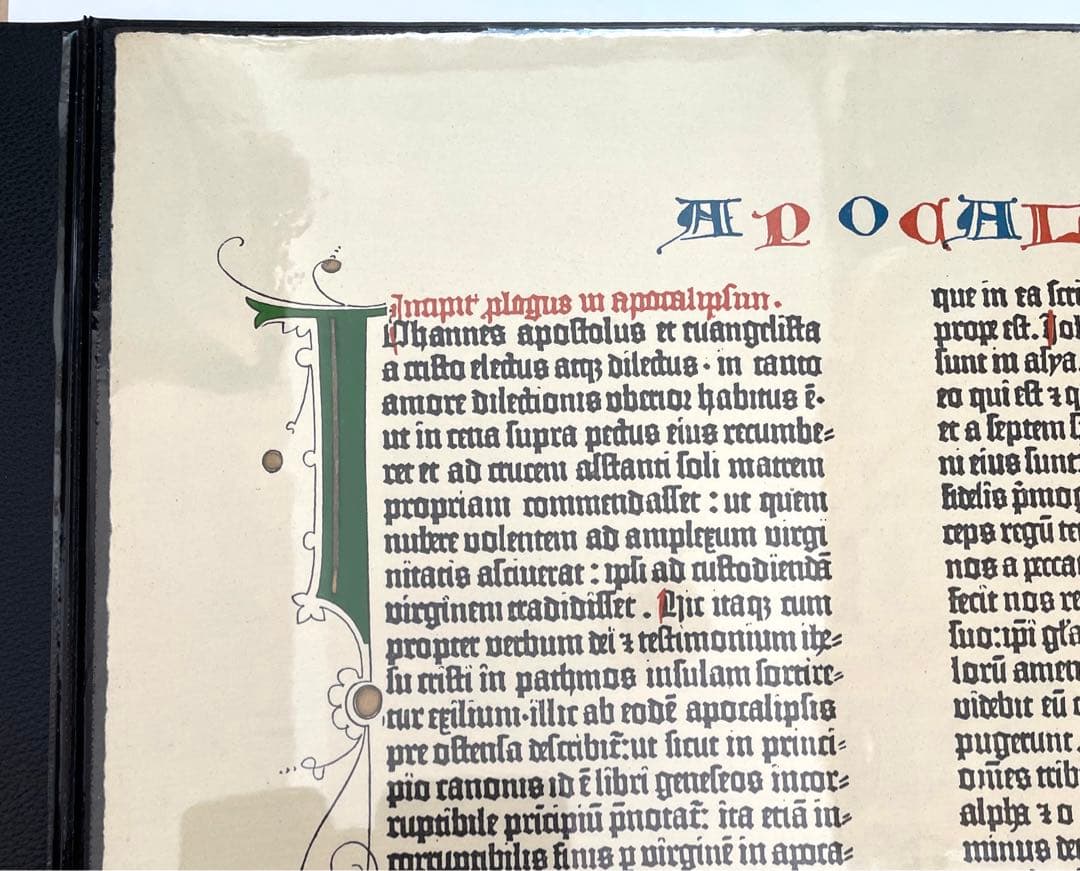 APOCAL
Incipit' plogus in apocalipsim.
IOhannes apostolus et euangelista
a cristo electus atqꝫ dilectus · in tanto
amore dilectionis vberior habitus ē·
ut in cena supra pectus eius recumbe⸗
ret et ad crucem astanti soli matrem
propriam commendasset : ut quem
nubere volentem ad amplexum virgi
nitatis asciuerat : ipsi ad custodiendā
virginem tradidisset . Hic itaqꝫ cum
propter verbum dei ⁊ testimonium ihe⸗
su cristi in pathmos insulam sortire⸗
tur exilium·illic ab eodē apocalipsis
pre ostensa describit̄:ut sicut in princi⸗
pio canonis id ē libri geneseos incor⸗
ruptibile prīcipiū p̄notat̄: ita etiā in⸗
corruptibilis finis p virginē in apoca⸗
que in ea scri
prope est. Ioh
sunt in asya.
eo qui est ⁊ q
et a septem s
ni eius sunt:
fidelis p̄mog
ceps regū te
nos a pecca
fecit nos re
suo:ip̄i gl'a
lorū amen
videbit eū
pugerunt.
om̄es trib
alpha ⁊ o
minus de